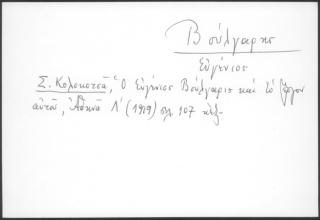 Βούλγαρης
Εὐγένιος
Σ. Κολοκοτσᾶ, Ὁ Εὐγένιος Βούλγαρις καὶ τὸ ἔργον
αὐτοῦ, Ἀθηνᾶ Λ´ (1919) σελ. 107 κἑξ-